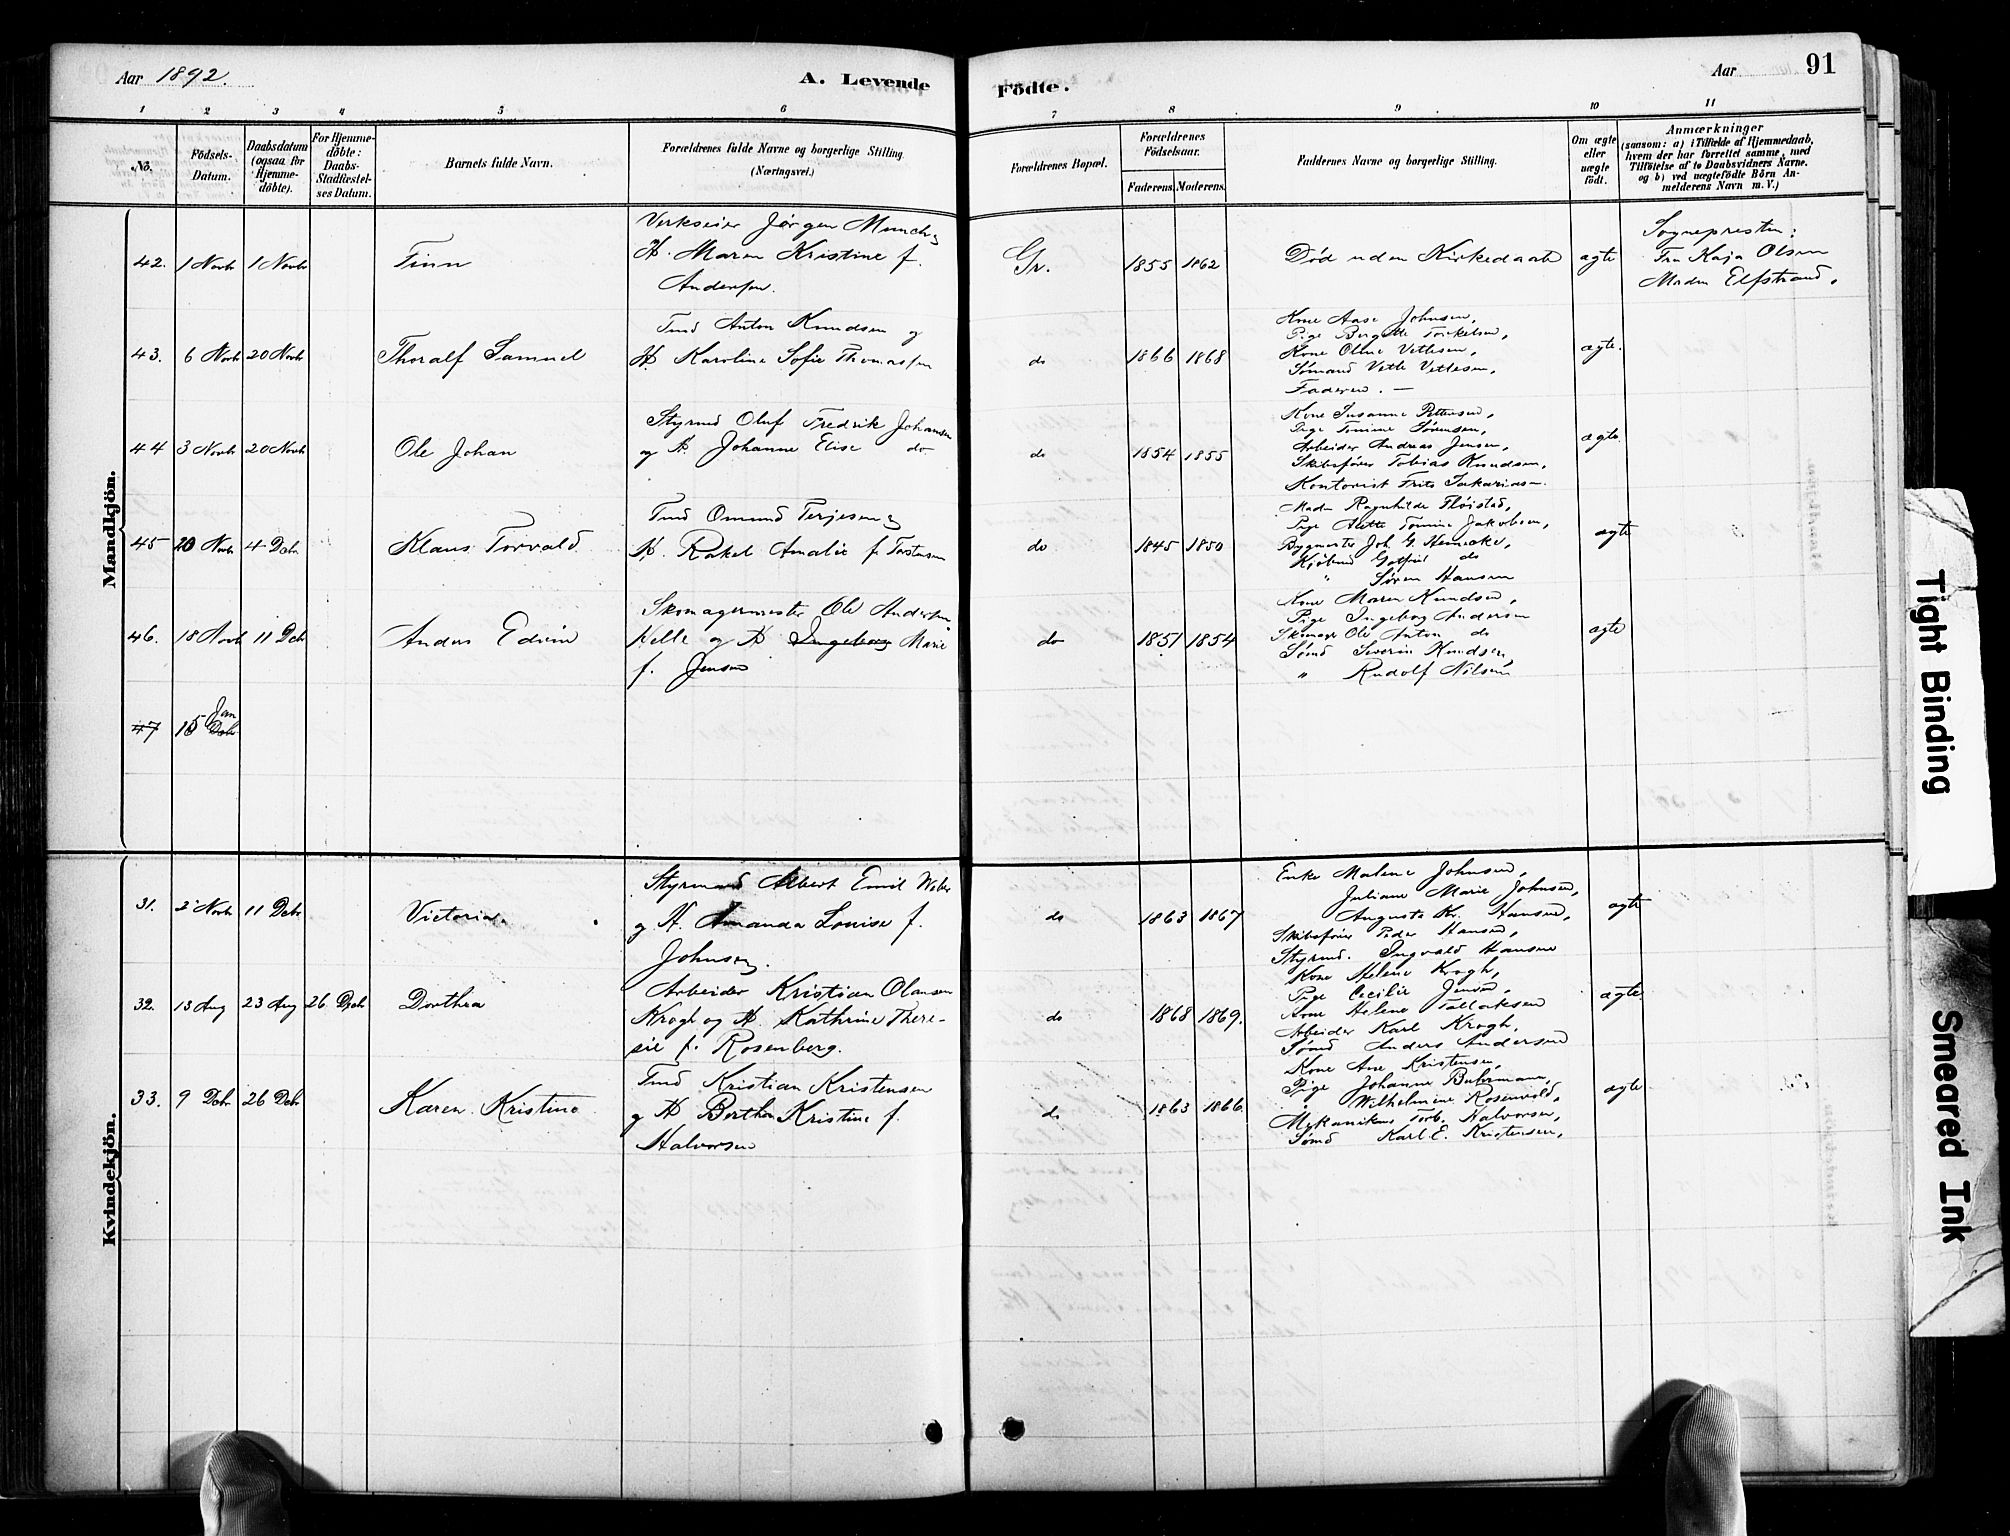 Aar 1892.
A. Levende
Födte.
Aar
91
1 2 3 4 5 6 7 8 9 10 11
No.
Födsels-
Datum.
Daabsdatum
(ogsaa for
Hjemme-
döbte).
For Hjemme-
döbte:
Daabs-
Stadfæstel-
ses Datum.
Barnets fulde Navn.
Forældrenes fulde Navne og borgerlige Stilling
(Næringsvei.)
Forældrenes Bopæl.
Forældrenes
Födselsaar.
Faderens. Moderens.
Faddernes Navne og borgerlige Stilling.
Om ægte
eller
uægte
födt.
Anmærkninger
(saasom: a) i Tilfælde af Hjemmedaab,
hvem der har forrettet samme, med
Tilföielse af to Daabsvidners Navne.
og b) ved uægtefödte Börn An-
melderens Navn m. V.)
Mandkjön.
42. 1 Novb 1 Novb
Finn
Verkseier Jørgen Munch
H. Maren Kristine f.
Andersen.
Gr.
1855 1862
Død uden Kirkedaab
ægte
Sognepresten:
Fru Kaja Olsen
Madm Elfstrand,
43. 6 Novb 20 Novb
Thoralf Samuel
Tmd Anton Knudsen og
H Karoline Sofie Thomassen
do
1866 1868
Kone Aase Johnsen,
Pige Bergitte Torkelsen,
Kone Oline Vettesen,
Sømand Vetle Vettesen,
Faderen. —
ægte.
44 3 Novb 20 Novb
Ole Johan
Styrmd Oluf Fredrik Johansen
og H Johanne Elise do
do
1854 1855
Kone Susanne Pettersen,
Pige Tomine Sørensen,
Arbeider Andreas Jensen,
Skibsfører Tobias Knudsen,
Kontorist Frits Sakariasen.
ægte.
45 20 Novb 4 Debr
Klaus Torvald
Tmd Omund Terjesen
H. Rakel Amalie f. Torstensen
do
1845 1850
Madm Ragnhilde Fløistad,
Pige Alette Tomine Jakobsen,
Bygmester Joh. G. Heinecke,
Kjøbmd Gotfried do
" Søren Hansen
ægte
46. 18 Novb 11 Deb
Anders Edvin
Skomagermester Ole Andersen
Kelle og H Ingeborg Marie
f. Jensen
do
1851 1854
Kone Maren Knudsen,
Pige Ingeborg Andersen
Skomager Ole Anton do
Sømd Severin Knudsen,
" Rudolf Nilsen
ægte
47 15 Jan Debr
Kvindekjön.
31. 2 Novb 11 Debr
Victoria
Styrmand Albert Emil Weber
og H. Amanda Louise f.
Johnsen.
do
1863 1867
Enke Malene Johnsen,
Juliane Marie Johnsen,
Augusta Kr. Hansen,
Skibsfører Peder Hansen,
Styrmd. Ingvald Hansen
ægte
32. 13 Aug 23 Aug 26 Debr
Dorthea
Arbeider Kristian Olansen
Krogh og H. Kathrine There-
sie f. Rosenberg.
do
1868 1869.
Kone Helene Krogh,
Pige Cecilie Jensen,
Kone Helene Tallaksen
Arbeider Karl Krogh,
Sømd Anders Andersen
ægte.
33. 9 Debr 26 Debr
Karen Kristine
Tmd Kristian Kristensen
og H Berthe Kristine f.
Halvorsen
do
1863 1866.
Kone Ane Kristensen,
Pige Johanne
" Wilhelmine Rosenvold,
Mekanikus Torb. Halvorsen,
Sømd Karl E. Kristensen,
ægte
Tight Binding
Smeared Ink